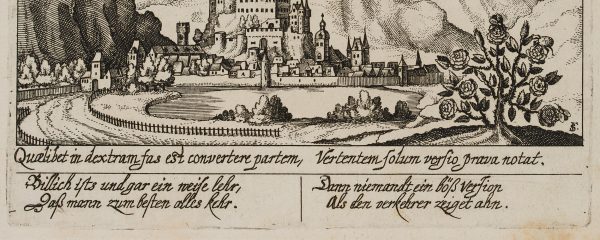 Quælibet in dextram fas est convertere partem, Vertentem solum versio prava notat.
Billich ists und gar ein weise lehr,
Daß mann zum besten alles kehr.
Dann niemandt ein böß version
Als den verkehrer zeiget ahn.